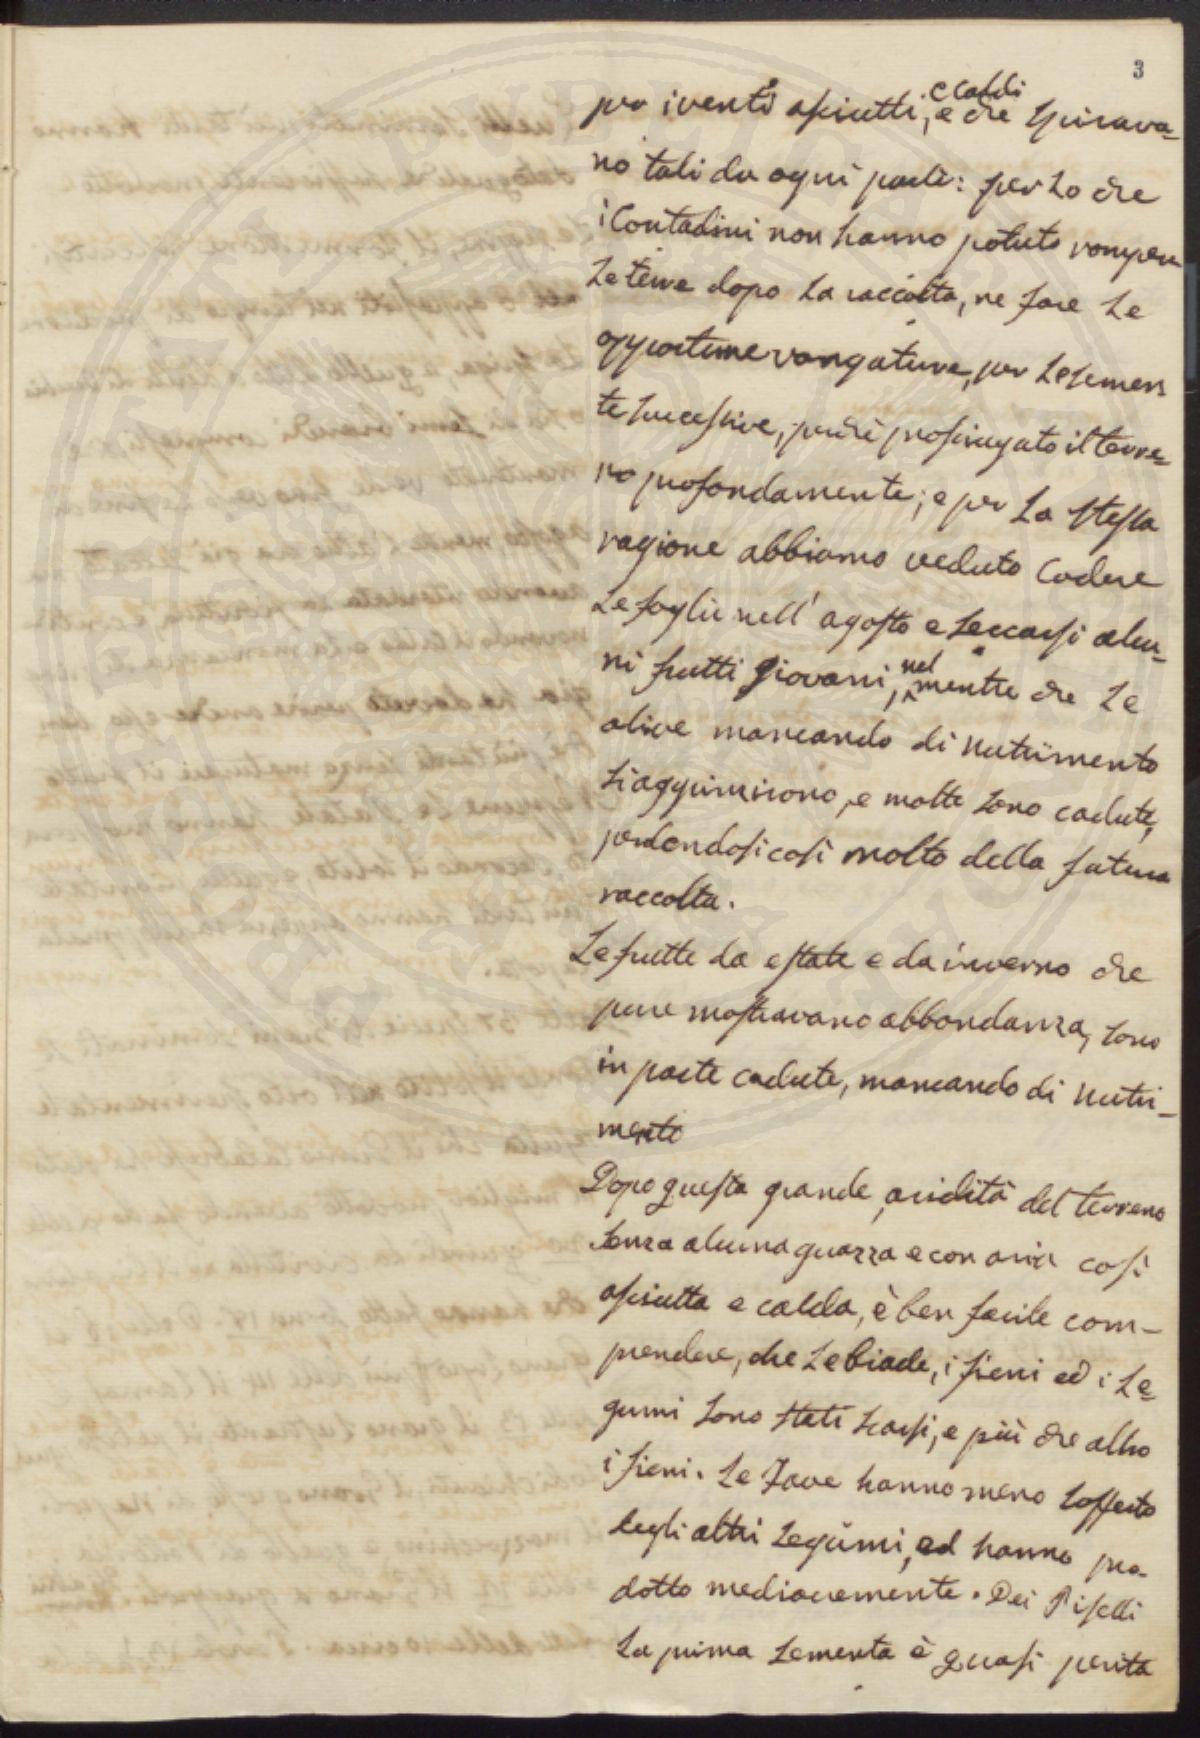 3
per i venti asciutti, e caldi e che spirava-
no tali da ogni parte: per lo che
i Contadini non hanno potuto rompere
le terre dopo la raccolta, ne fare le
opportune vangature, per le semen
te successive, perchè prosciugato il terre-
no profondamente; e per la stessa
ragione abbiamo veduto cadere
le foglie nell' agosto e seccarsi alcu-
ni frutti giovani, nel mentre che le
olive mancando di nutrimento
si aggrinzirono, e molte sono cadute,
perdendosi così molto della futura
raccolta.
Le frutte da estate e da inverno che
pure mostravano abbondanza, sono
in parte cadute, mancando di nutri-
mento
Dopo questa grande aridità del terreno
senza alcuna guazza e con aria così
asciutta e calda, è ben facile com-
prendere, che le biade, i fieni ed i le-
gumi sono stati scarsi, e più che altro
i fieni. Le Fave hanno meno sofferto
degli altri legumi, ed hanno pro-
dotto mediocremente. Dei Piselli
la prima sementa è quasi perita